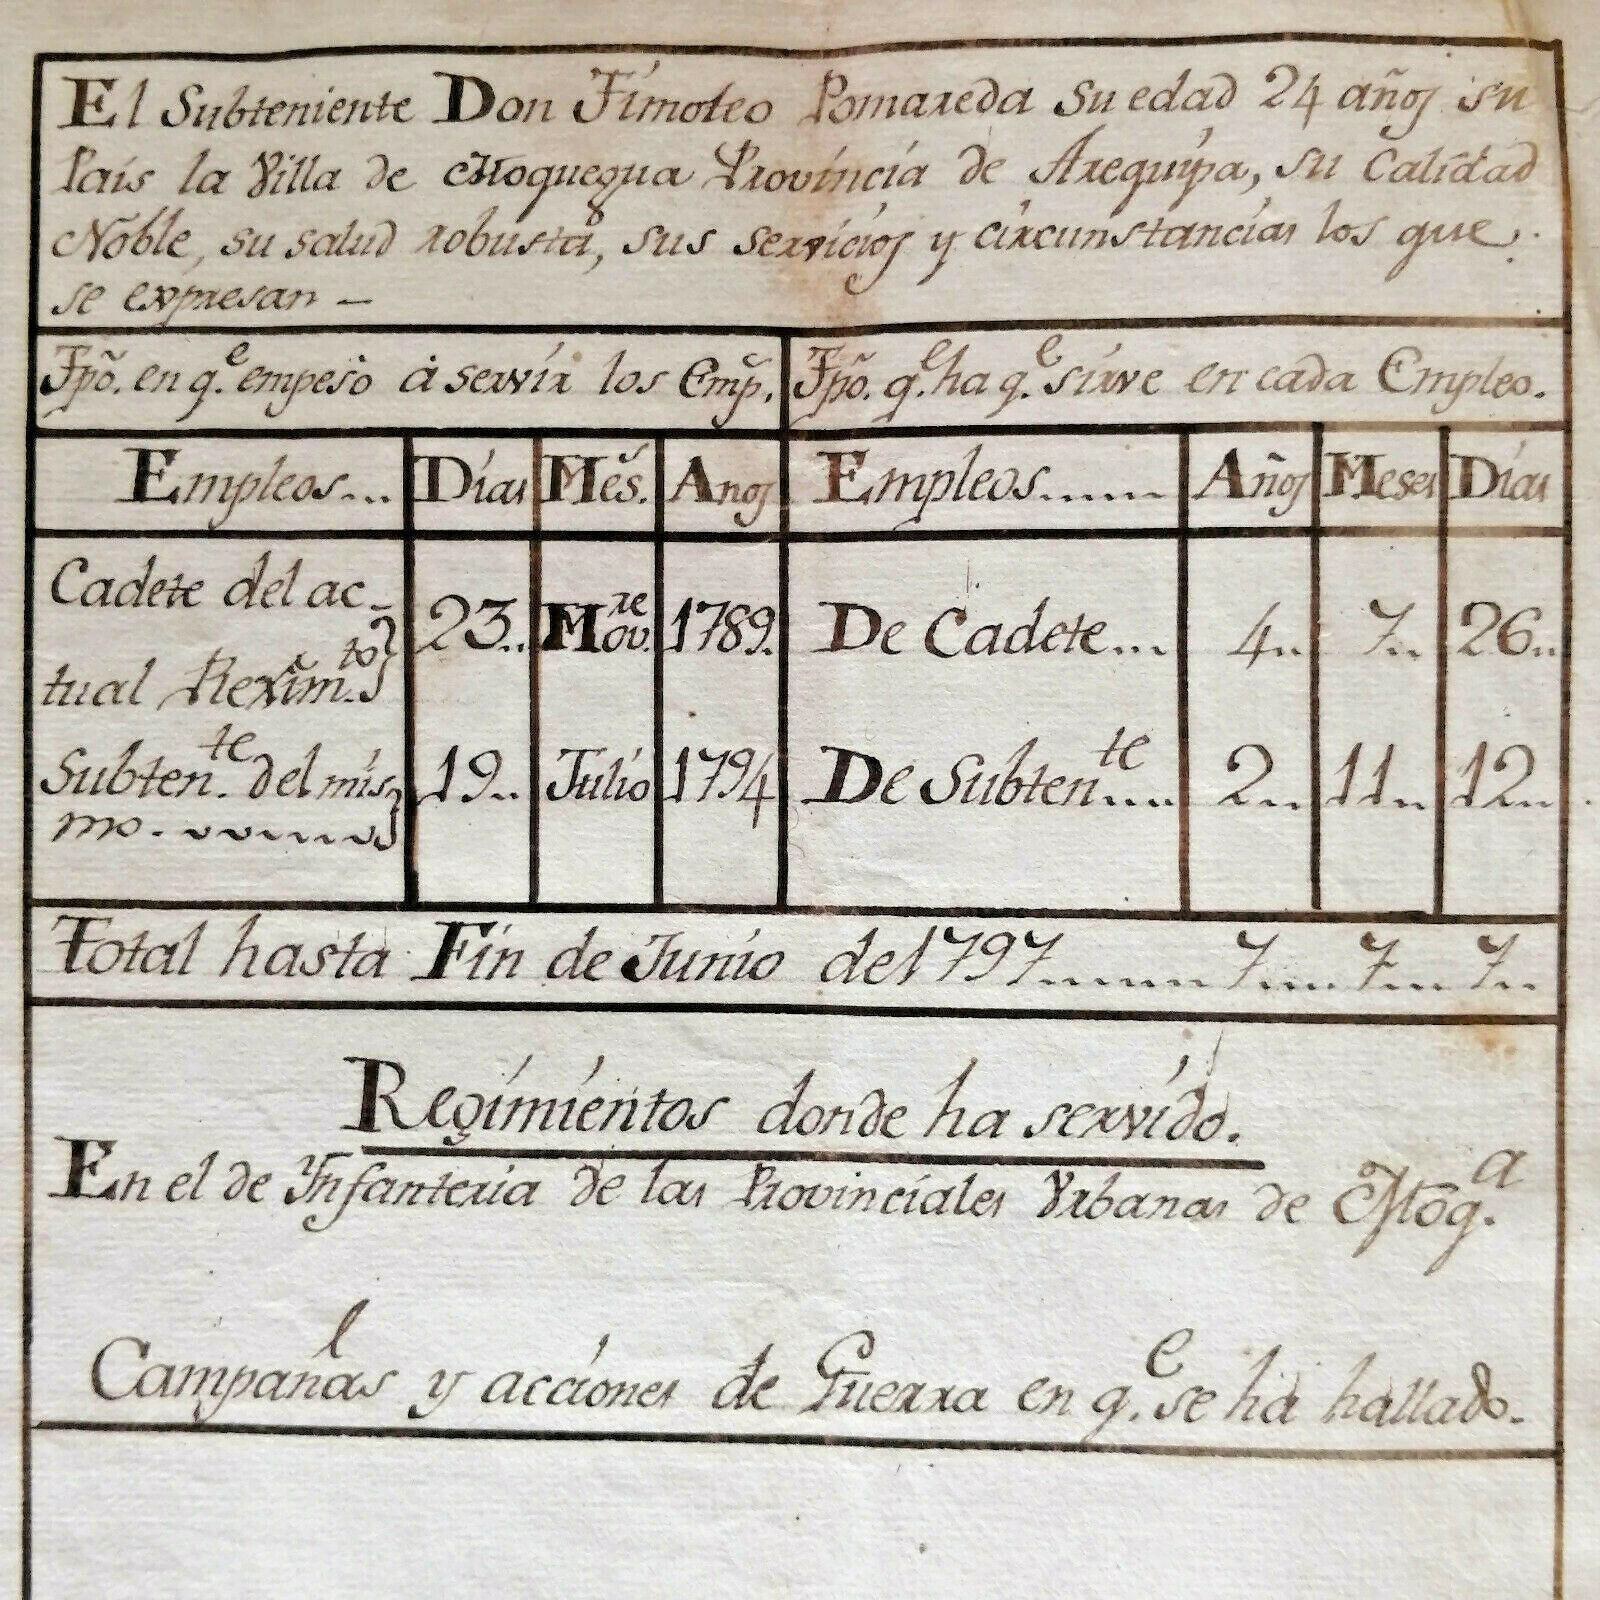 El Subteniente Don Timoteo Pomareda su edad 24 años su
Pais la Villa de Moquegua Provincia de Arequipa, su calidad
Noble, su salud robusta, sus servicios y circunstancias los que
se expresan –
Tpõ. en q.e empeso á servir los Emp.
Tpõ. q.e ha q.e sirve en cada Empleo.
Empleos... Dias Mẽs. Anos Empleos...... Años Meses Dias
Cadete del ac-
tual Rexim.to 23.. Nov.re 1789. De Cadete... 4.. 7.. 26..
Subten.te del mis
mo. 19.. Julio 1794 De Subten.te... 2.. 11.. 12..
Total hasta Fin de Junio del 1797...... 7.... 7... 7..
Regimientos donde ha servido.
En el de Ynfanteria de las Provinciales Vrbanas de Moq.a
Campañas y acciones de Guerra en q.e se ha hallado.